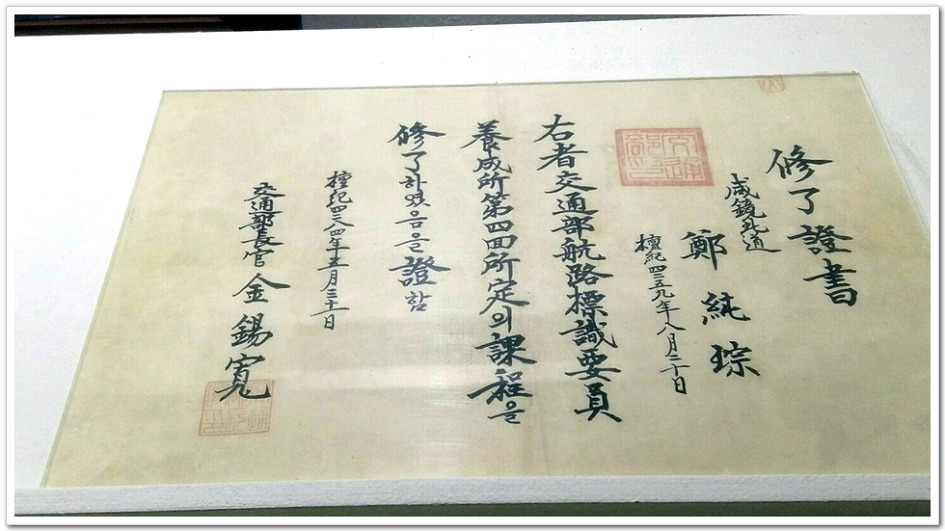 修了證書
咸鏡北道
鄭純琮
檀紀四二五九年八月二十日
右者交通部航路標識要員
養成所第四回所定의課程을
修了하였음을證함
檀紀四二八四年五月三十一日
交通部長官 金錫寬